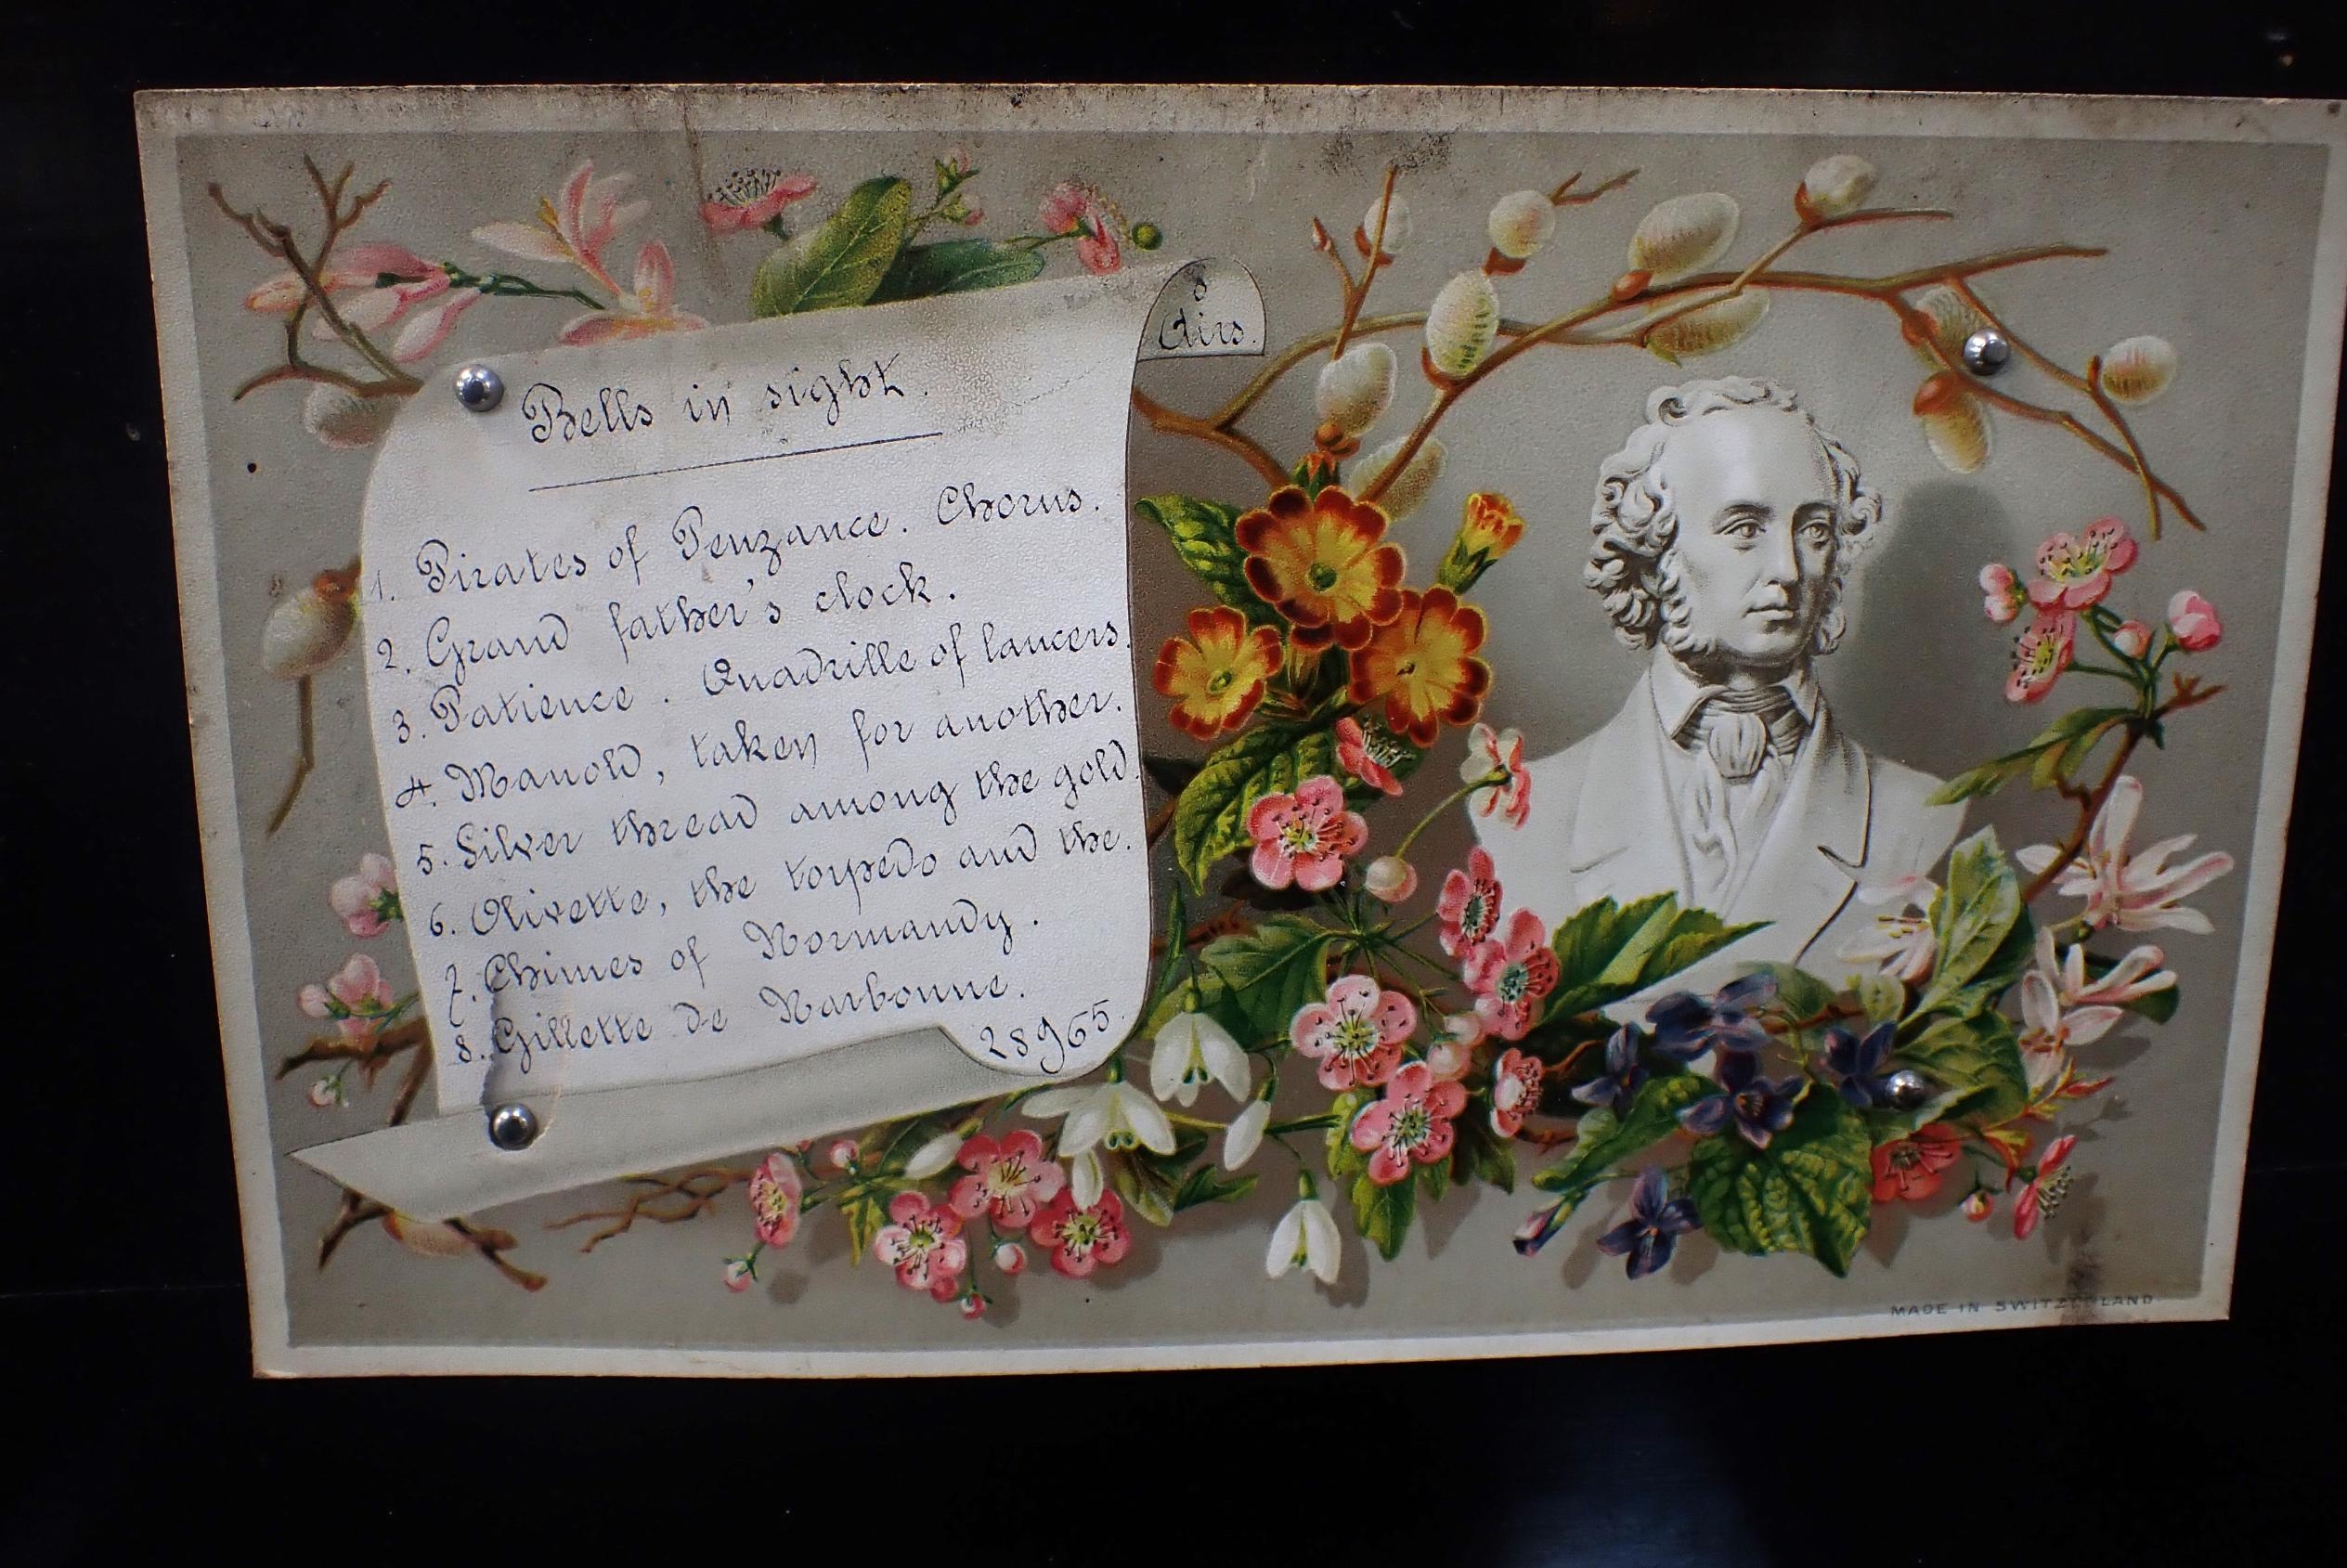 8
Airs.
Bells in sight.
1. Pirates of Penzance. Chorus.
2. Grand father's clock.
3. Patience. Quadrille of lancers.
4. Manold, taken for another.
5. Silver thread among the gold.
6. Olivette, the torpedo and the.
7. Chimes of Normandy.
8. Gillette de Narbonne.
28965.
MADE IN SWITZERLAND